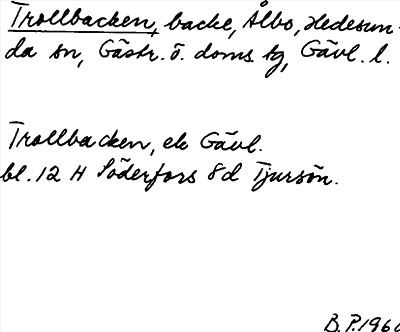 Trollbacken, backe, Ålbo, Hedesun-
da sn, Gästr. ö. doms tg, Gävl. l.
Trollbacken, ek Gävl.
bl. 12 H Söderfors 8d Tjursön.
B.P. 1960